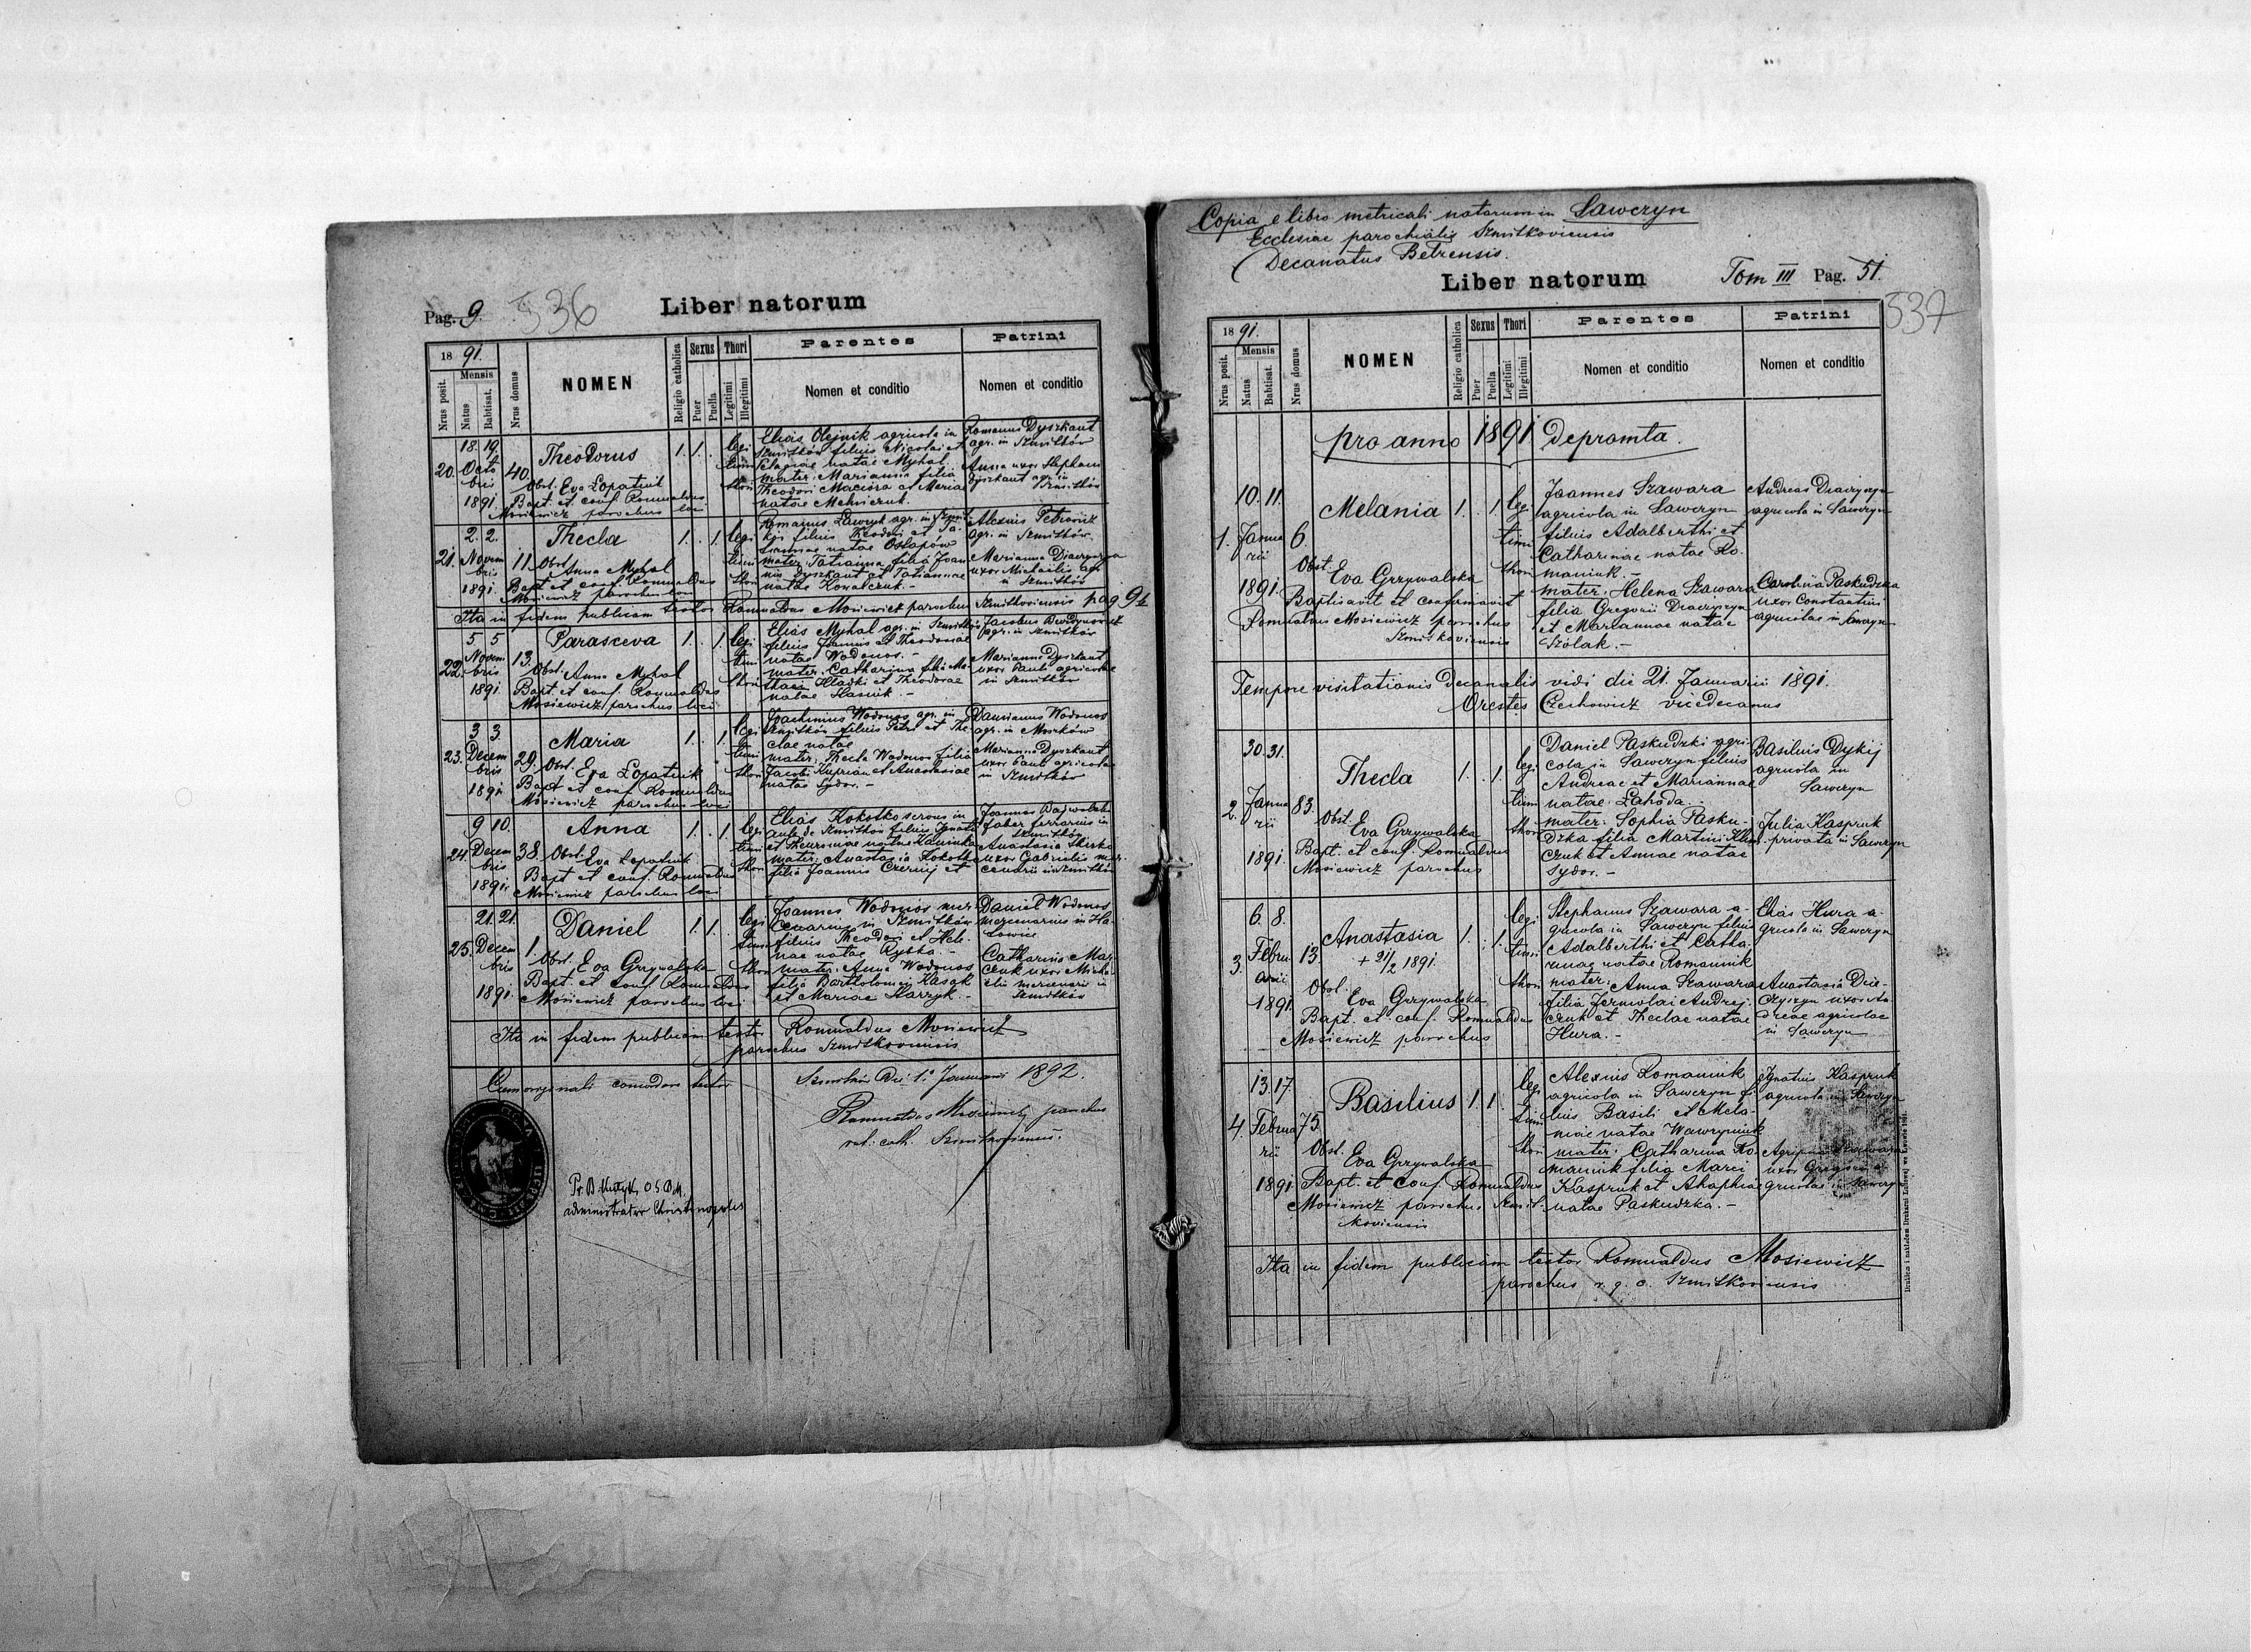 Pag. 9. 536
Liber natorum
18 91.
Nrus posit.
Mensis
Natus
Babtisat.
Nrus domus
NOMEN
Religio catholica
Sexus
Puer
Puella
Thori
Legitimi
Illegitimi
Parentes
Nomen et conditio
Patrini
Nomen et conditio
20.
18. 19.
Octo
bris
1891.
40.
Theodorus
Obst. Eva Lopatnik
Bapt. et conf. Romualdus
Mosiewicz parochus loci
1. 1.
legi
timi
thori
Elias Olejnik agricola in
Szmitków filius Nicolai et
natae Myhal
mater: Marianna filia
Theodori Maciora et Mariae
natae Melniczuk.
Romanus Dyszkant
agr. in Szmitków
Anna uxor Stephani
Dyszkant agr. in
Szmitków
21.
2. 2.
Novem
bris
1891.
11.
Thecla
Obst. Anna Myhal
Bapt. et conf. Romualdus
Mosiewicz parochus loci
1. 1.
legi
timi
thori
Romanus Lawryk agr. in Szmit
ków filius Theodori et Ta-
tiannae natae Ostapów
mater: Tatianna filia Joan
nis Dyszkant et Tatiannae
natae Kowalczuk.-
Alexius Petrowicz
agr. in Szmitków.
Marianna Diaczyszyn
uxor Michaelis agr.
in Szmitków
Ita in fidem publicam testor Romualdus Mosiewicz parochus Szmitkoviensis pag 9½
22.
5 5
Novem
bris
1891.
13.
Parasceva
Obst. Anna Myhal
Bapt. et conf. Romualdus
Mosiewicz parochus loci
1. 1.
legi
timi
thori
Elias Myhal agr. in Szmitków
filius Joannis et Theodosiae
natae Wodonos.-
mater: Catharina filia
Hladki et Theodorae
natae Hasiuk.-
Jacobus
agr. in Szmitków
Marianna Dyszkant
uxor Pauli agricolae
in Szmitków
23.
3 3.
Decem
bris
1891
29.
Maria
Obst. Eva Lopatnik
Bapt. et conf. Romualdus
Mosiewicz parochus loci
1. 1.
legi
timi
thori
Joachimus Wodonos agr. in
Szmitków filius Petri et The
clae natae
mater: Thecla Wodonos filia
Jacobi Kuprian et Anastasiae
natae Sydor.-
Damianus Wodonos
agr. in Moszków
Marianna Dyszkant
uxor Pauli agricolae
in Szmitków
24.
9 10.
Decem
bris
1891.
38.
Anna
Obst. Eva Lopatnik
Bapt. et conf. Romualdus
Mosiewicz parochus loci
1. 1.
legi
timi
thori
Elias Kokotko servus in
aula de Szmitków filius Ignatii
natae Kaminka
mater: Anastasia Kokotko
filia Joannis Czernij et
Joannes
faber ferrarius in
Szmitków
Anastasia
uxor Gabrielis mer.
cenarii in Szmitków
25.
21. 21.
Decem
bris
1891.
1.
Daniel
Obst. Eva Grzywalska
Bapt. et conf. Romualdus
Mosiewicz parochus loci
1. 1.
legi
timi
thori
Joannes Wodonos mer.
cenarius in Szmitków
filius Theodori et Hele-
nae natae Rybka.-
mater: Anna Wodonos
filia Bartholomaei Kasak
et Mariae Harzyk.-
Daniel Wodonos
mercenarius in
Catharina
uxor Micha-
elis mercenarii in
Szmitków
Ita in fidem publicam testor Romualdus Mosiewicz
parochus Szmitkoviensis
Cum originali testor
Szmitków Die 1º Januarii 1892.
Romualdus Mosiewicz parochus
rit: cath. Szmitkoviensis.
administrator Christinopolis
Copia e libro metricali natorum in Sawczyn
Ecclesiae parochialis Szmitkoviensis
Decanatus Belzensis.
Liber natorum Tom III Pag. 51.
537
18 91.
Nrus posit.
Mensis
Natus
Babtisat.
Nrus domus
NOMEN
Religio catholica
Sexus
Puer
Puella
Thori
Legitimi
Illegitimi
Parentes
Nomen et conditio
Patrini
Nomen et conditio
pro anno 1891 depromta.
1.
10. 11.
Janua
rii
1891.
6.
Melania
Obst. Eva Grzywalska
Baptisavit et confirmavit
Romualdus Mosiewicz parochus
Szmitkoviensis
1. 1.
legi
timi
thori
Joannes Szawara
agricola in Sawczyn
filius Adalberthi et
Catharinae natae Ro-
maniuk.-
mater: Helena Szawara
filia Gregorii Diaczyszyn
et Mariannae natae
Szolak.-
Andreas Diaczyszyn
agricola in Sawczyn
Carolina Paskudzka
uxor Constantini
agricolae in Sawczyn
Tempore visitationis Decanalis vidi die 21. Januarii 1891.
Orestes Czechowicz vicedecanus
2.
30. 31.
Janua
rii
1891.
83.
Thecla
Obst. Eva Grzywalska
Bapt. et conf. Romualdus
Mosiewicz parochus
1. 1.
legi
timi
thori
Daniel Paskudzki agri-
cola in Sawczyn filius
Andreae et Mariannae
natae Lahoda.-
mater: Sophia Pasku-
dzka filia Martini Klim
czuk et Annae natae
Sydor.-
Basilius Dykij
agricola in
Sawczyn
Julia Kaspruk
privata in Sawczyn
3.
6. 8.
Febru
arii
1891.
13.
Anastasia
+ 21/2 1891.
Obst. Eva Grzywalska
Bapt. et conf. Romualdus
Mosiewicz parochus
1. 1.
legi
timi
thori
Stephanus Szawara a-
gricola in Sawczyn filius
Adalberthi et Catha-
rinae natae Romaniuk
mater: Anna Szawara
filia Jermolai Andrej-
czuk et Theclae natae
Hura.-
Elias Hura a-
gricola in Sawczyn
Anastasia Dia-
czyszyn uxor An
dreae agricolae
in Sawczyn
4.
13. 17.
Februa
rii
1891
75.
Basilius
Obst. Eva Grzywalska
Bapt. et conf. Romualdus
Mosiewicz parochus Szmit-
koviensis
1. 1.
legi
timi
thori
Alexius Romaniuk
agricola in Sawczyn fi
lius Basili et Mela-
niae natae Wawryniuk
mater: Catharina Ro-
maniuk filia Marci
Kaspruk et Ahaphiae
natae Paskudzka.-
Ignatius Kaspruk
agricola in Sawczyn
Agripina Szawara
uxor Gregorii a-
gricolae in Sawczyn
Ita in fidem publicam testor Romualdus Mosiewicz
parochus r. g. c. Szmitkoviensis
Drukiem i nakładem Drukarni Ludowej we Lwowie